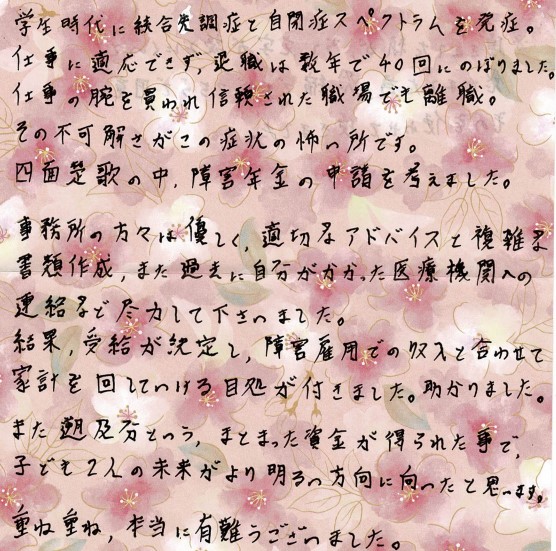 学生時代に統合失調症と自閉症スペクトラムを発症。
仕事に適応できず,退職は数年で40回にのぼりました。
仕事の腕を買われ信頼された職場でも離職。
その不可解さがこの症状の怖い所です。
四面楚歌の中,障害年金の申請を考えました。
事務所の方々は優しく,適切なアドバイスと複雑な
書類作成,また過去に自分がかかった医療機関への
連絡など尽力して下さいました。
結果,受給が決定し,障害雇用での収入と合わせて
家計を回していける目処が付きました。助かりました。
また遡及分という,まとまった資金が得られた事で,
子ども2人の未来がより明るい方向に向ったと思います。
重ね重ね,本当に有難うございました。